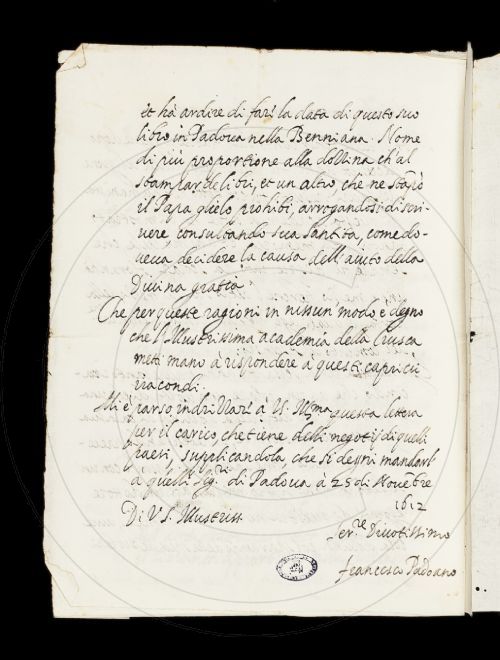 et hà ardire di far' la data di questo suo
libro in Padova nella Benniana. Nome
di più proportione alla dottrina ch'al
stampar de libri, et un altro, che ne stāpò
il Papa glielo prohibì, arrogandosi di scri-
vere, consultando sua Santità, come do-
vea decidere la causa dell'aiuto della
Divina gratia.
Che per queste ragioni in nissun' modo è degno
che l'Illustrissima academia della Crusca
meti mano à rispondere à questi capricii
iracondi.
Mi è parso indrizzar' à V. S. Illma questa lettera
per il carico, che tiene delli negotij di quelli
paesi, supplicandola, che si degni mandarl
à quelli Sigri di Padova à 25 di Novēbre
1612
Di V S. Illustriss.
Serre Divotissimo
Francesco Padoano